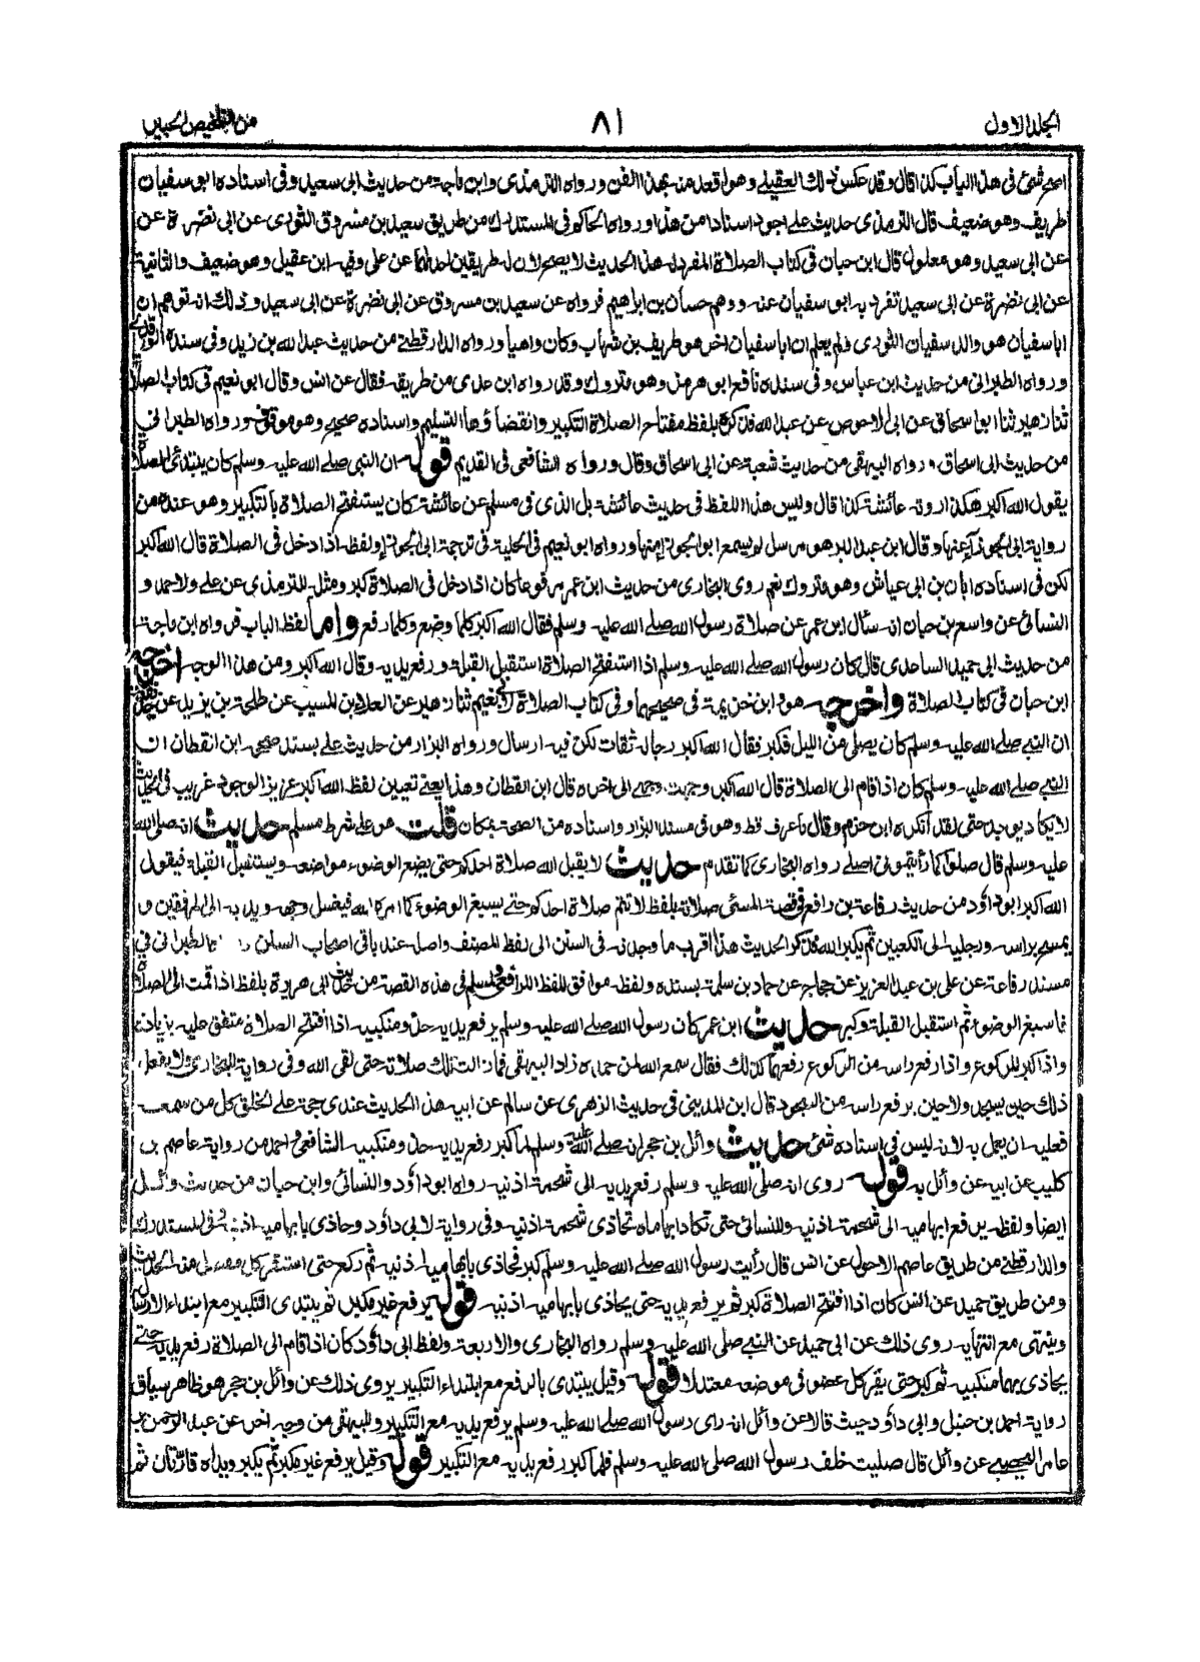 المجلد الاول ٨١ من التلخيص الحبير
اصح شئ فى هذا الباب كذا قال وقد عكس ذلك العقيلى وهو اقعد منه بهذا الفن ورواه الترمذى وابن ماجة من حديث ابى سعيد وفى اسناده ابو سفيان
طريف وهو ضعيف قال الترمذى حديث على اجود اسنادا من هذا ورواه الحاكم فى المستدرك من طريق سعيد بن مسروق الثورى عن ابى نضرة عن
عن ابى سعيد وهو معلول قال ابن حبان فى كتاب الصلاة المفرد له هذا الحديث لا يصح لان له طريقين احداهما عن على وفيه ابن عقيل وهو ضعيف والثانية
عن ابى نضرة عن ابى سعيد تفرد به ابو سفيان عنه ووهم حسان بن ابراهيم فرواه عن سعيد بن مسروق عن ابى نضرة عن ابى سعيد وذلك انه توهم ان
ابا سفيان هو والد سفيان الثورى ولم يعلم ان ابا سفيان اخر هو طريف بن شهاب وكان واهيا ورواه الدارقطنى من حديث عبد الله بن زيد وفى سنده الواقدى
ورواه الطبرانى من حديث ابن عباس وفى سنده نافع ابو هرمز وهو متروك وقد رواه ابن عدى من طريقه فقال عن انس وقال ابو نعيم فى كتاب الصلاة
ثنا زهير ثنا ابو اسحاق عن ابى الاحوص عن عبد الله فذكره بلفظ مفتاح الصلاة التكبير وانقضاؤها التسليم واسناده صحيح وهو موقوف ورواه الطبرانى
من حديث ابى اسحاق ورواه البيهقى من حديث شعبة عن ابى اسحاق وقال ورواه الشافعى فى القديم قوله ان النبى صلى الله عليه وسلم كان يبتدئ الصلاة
يقول الله اكبر هكذا روته عائشة كذا قال وليس هذا اللفظ فى حديث عائشة بل الذى فى مسلم عن عائشة كان يستفتح الصلاة بالتكبير وهو عنده من
رواية ابى الجوزاء عنها وقال ابن عبد البر هو مرسل لم يسمع ابو الجوزاء منها ورواه ابو نعيم فى الحلية فى ترجمة ابى الجوزاء ولفظه اذا دخل فى الصلاة قال الله اكبر
لكن فى اسناده ابان بن ابى عياش وهو متروك نعم روى البخارى من حديث ابن عمر مرفوعا كان اذا دخل فى الصلاة كبر ومثله للترمذى عن على ولاحمد و
النسائى عن واسع بن حبان انه سأل ابن عمر عن صلاة رسول الله صلى الله عليه وسلم فقال الله اكبر كلما وضع وكلما رفع واما لفظ الباب فرواه ابن ماجة
من حديث ابى حميد الساعدى قال كان رسول الله صلى الله عليه وسلم اذا استفتح الصلاة استقبل القبلة ورفع يديه وقال الله اكبر ومن هذا الوجه اخرجه
ابن حبان فى كتاب الصلاة واخرجه هو وابن خزيمة فى صحيحهما وفى كتاب الصلاة لابى نعيم ثنا زهير عن العلاء بن المسيب عن طلحة بن يزيد عن حذيفة
ان النبى صلى الله عليه وسلم كان يصلى من الليل فكبر فقال الله اكبر رجاله ثقات لكن فيه ارسال ورواه البزار من حديث على بسند صححه ابن القطان ان
النبى صلى الله عليه وسلم كان اذا قام الى الصلاة قال الله اكبر وجهت وجهى الى اخره قال ابن القطان وهذا يعنى تعيين لفظ الله اكبر عزيز الوجود غريب فى الحديث
لا يكاد يوجد حتى لقد انكره ابن حزم وقال ما عرف قط وهو فى مسند البزار واسناده من الصحة بمكان قلت هو على شرط مسلم حديث انه صلى الله
عليه وسلم قال صلوا كما رأيتمونى اصلى رواه البخارى كما تقدم حديث لا يقبل الله صلاة احدكم حتى يضع الوضوء مواضعه ويستقبل القبلة فيقول
الله اكبر ابو داؤد من حديث رفاعة بن رافع فى قصة المسئ صلاته بلفظ لا تتم صلاة احدكم حتى يسبغ الوضوء كما امره الله فيغسل وجهه ويديه الى المرفقين و
يمسح براسه ورجليه الى الكعبين ثم يكبر الله فذكر الحديث هذا اقرب ما وجدته فى السنن الى لفظ المصنف واصله عند باقى اصحاب السنن الطبرانى فى
مسند رفاعة عن على بن عبد العزيز عن حجاج عن حماد بن سلمة بسنده ولفظه موافق للفظ الرافعى ولمسلم فى هذه القصة من حديث ابى هريرة بلفظ اذا قمت الى الصلاة
فاسبغ الوضوء ثم استقبل القبلة وكبر حديث ابن عمر كان رسول الله صلى الله عليه وسلم يرفع يديه حذو منكبيه اذا افتتح الصلاة متفق عليه بزيادة
واذا كبر للركوع واذا رفع راسه من الركوع رفعهما كذلك فقال سمع الله لمن حمده زاد البيهقى فما زالت تلك صلاته حتى لقى الله وفى رواية البخارى ولا يفعل
ذلك حين يسجد ولا حين يرفع راسه من السجود قال ابن المدينى فى حديث الزهرى عن سالم عن ابيه هذا الحديث عندى حجة على الخلق كل من سمعه
فعليه ان يعمل به لانه ليس فى اسناده شئ حديث وائل بن حجر انه صلى الله عليه وسلم لما كبر رفع يديه حذو منكبيه الشافعى واحمد من رواية عاصم بن
كليب عن ابيه عن وائل به قوله روى انه صلى الله عليه وسلم رفع يديه الى شحمة اذنيه رواه ابو داؤد والنسائى وابن حبان من حديث وائل
ايضا ولفظه يرفع ابهاميه الى شحمة اذنيه وللنسائى حتى تكاد ابهاماه تحاذى شحمة اذنيه وفى رواية لابى داؤد وحاذى بابهاميه اذنيه وفى المستدرك
والدارقطنى من طريق عاصم الاحول عن انس قال رأيت رسول الله صلى الله عليه وسلم كبر فحاذى بابهاميه اذنيه ثم ركع حتى استقر كل مفصل منه الحديث
ومن طريق حميد عن انس كان اذا افتتح الصلاة كبر ثم يرفع يديه حتى يحاذى بابهاميه اذنيه قوله يرفع غير مكبر ثم يبتدى التكبير مع ابتداء الارسال
وينتهى مع انتهائه روى ذلك عن ابى حميد عن النبى صلى الله عليه وسلم رواه البخارى والاربعة ولفظ ابى داؤد كان اذا قام الى الصلاة رفع يديه حتى
يحاذى بهما منكبيه ثم كبر حتى يقر كل عضو فى موضعه معتدلا قوله وقيل يبتدى بالرفع مع ابتداء التكبير يروى ذلك عن وائل بن حجر هو ظاهر سياق
رواية احمد بن حنبل وابى داؤد حيث قالا عن وائل انه راى رسول الله صلى الله عليه وسلم يرفع يديه مع التكبير وللبيهقى من وجه اخر عن عبد الرحمن بن
عامر اليحصبى عن وائل قال صليت خلف رسول الله صلى الله عليه وسلم فلما كبر رفع يديه مع التكبير قوله وقيل يرفع غير مكبر ثم يكبر ويداه قارتان ثم